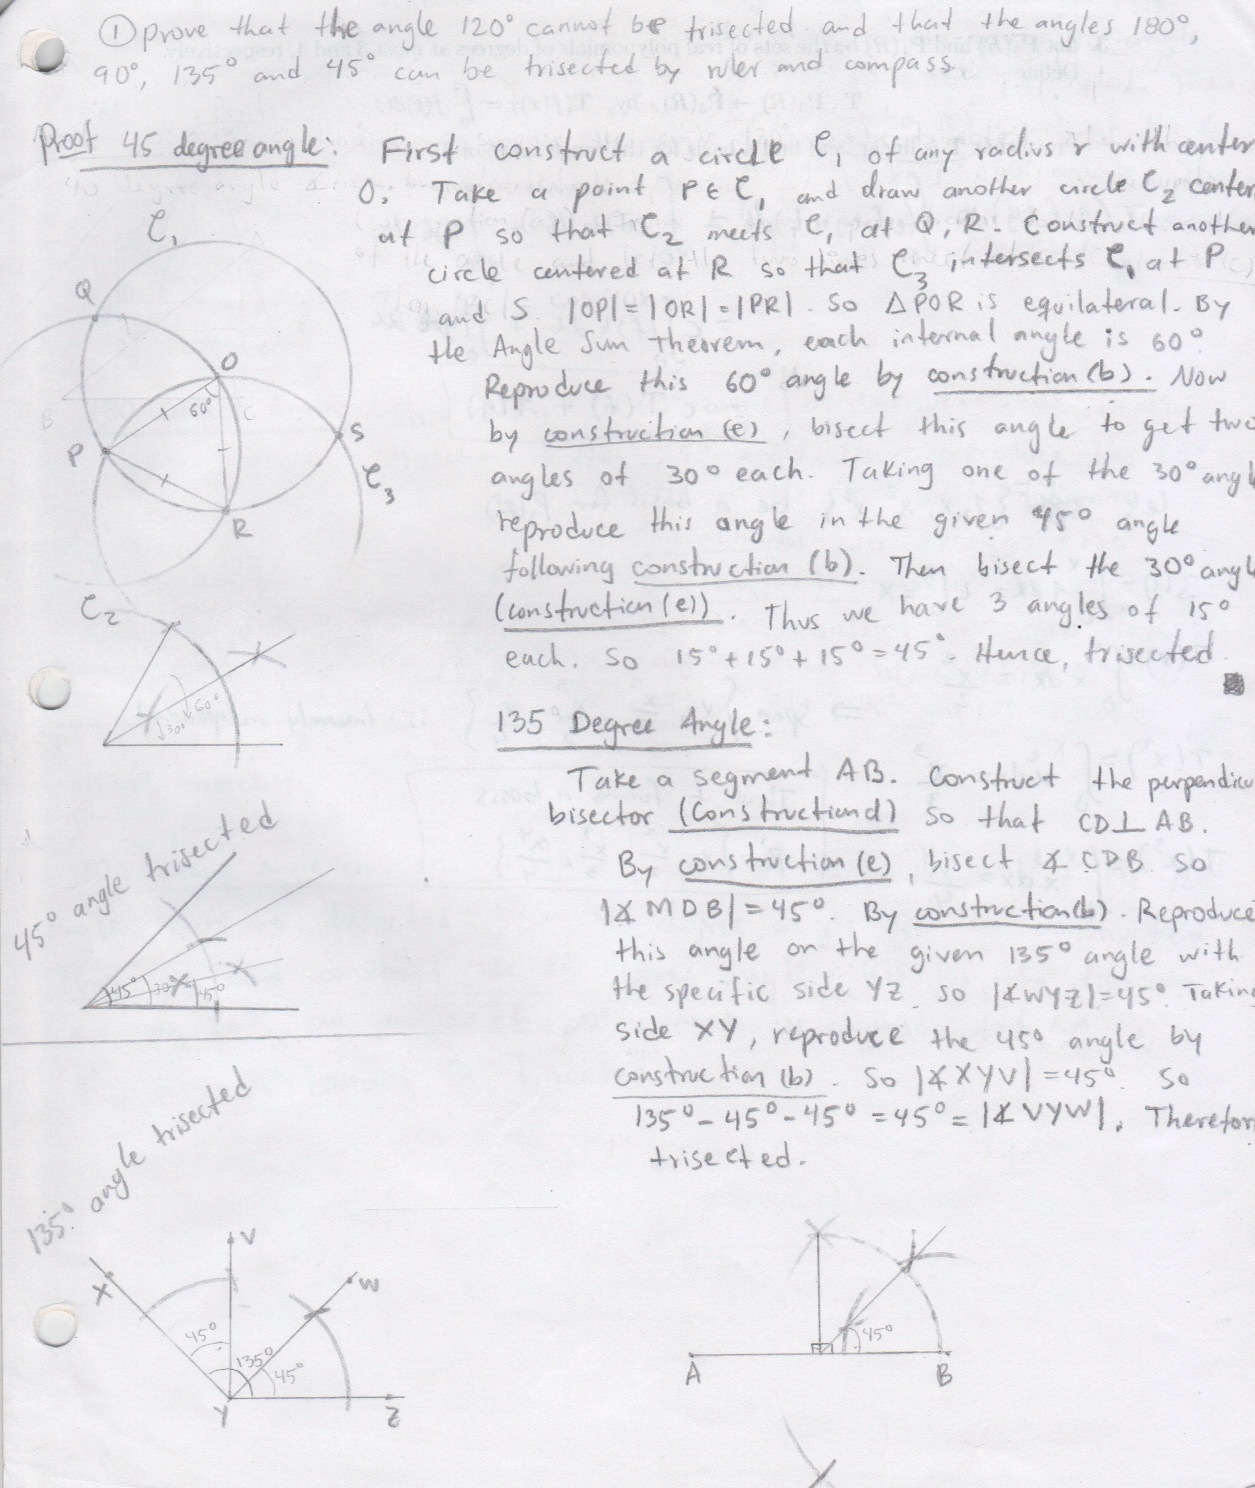 ① prove that the angle 120° cannot be trisected and that the angles 180°,
90°, 135° and 45° can be trisected by ruler and compass.
Proof 45 degree angle: First construct a circle C₁ of any radius r with center
O. Take a point P∈C₁ and draw another circle C₂ center
at P so that C₂ meets C₁ at Q, R. Construct another
circle centered at R so that C₃ intersects C₁ at P
and S. |OP|=|OR|=|PR|. So △POR is equilateral. By
the Angle Sum Theorem, each internal angle is 60°
Reproduce this 60° angle by construction (b). Now
by construction (e), bisect this angle to get two
angles of 30° each. Taking one of the 30° angl
reproduce this angle in the given 45° angle
following construction (b). Then bisect the 30° angl
(construction (e)). Thus we have 3 angles of 15°
each. So 15°+15°+15°=45°. Hence, trisected.
C₁
Q
O
60°
P
S
C₃
R
C₂
60°
30°
45° angle trisected
45° 30° 15°
135 Degree Angle:
Take a segment AB. Construct the perpendicu
bisector (Construction d) so that CD⊥AB.
By construction (e), bisect ∡CDB so
|∡MDB|=45°. By construction (b). Reproduce
this angle on the given 135° angle with
the specific side YZ so |∡WYZ|=45°. Taking
side XY, reproduce the 45° angle by
construction (b). So |∡XYV|=45°. So
135°-45°-45°=45°=|∡VYW|. Therefor
trisected.
135° angle trisected
V
X
W
45°
135°
45°
Y
Z
45°
A
B